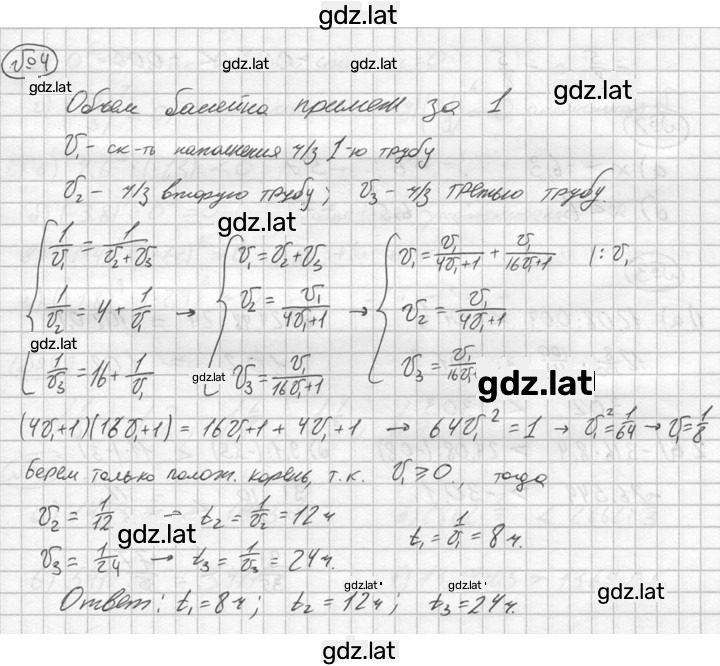 gdz.lat
№4
gdz.lat gdz.lat gdz.lat gdz.lat
Объем басейна примем за 1
V₁ - ск-ть наполнения ч/з 1-ю трубу
V₂ - ч/з вторую трубу; V₃ - ч/з третью трубу.
gdz.lat
{ 1/V₁ = 1/(V₂+V₃) { V₁ = V₂+V₃ { V₁ = V₁/(4V₁+1) + V₁/(16V₁+1) |: V₁
1/V₂ = 4 + 1/V₁ → V₂ = V₁/(4V₁+1) → V₂ = V₁/(4V₁+1)
gdz.lat
1/V₃ = 16 + 1/V₁ V₃ = V₁/(16V₁+1) V₃ = V₁/16V₁
gdz.lat gdz.lat
(4V₁+1)(16V₁+1) = 16V₁+1 + 4V₁+1 → 64V₁² = 1 → V₁² = 1/64 → V₁ = 1/8
Берем только полож. корень, т.к. V₁ ≥ 0, тогда
V₂ = 1/12 → t₂ = 1/V₂ = 12 ч t₁ = 1/V₁ = 8 ч.
gdz.lat
V₃ = 1/24 → t₃ = 1/V₃ = 24 ч.
gdz.lat gdz.lat gdz.lat
Ответ: t₁ = 8 ч; t₂ = 12 ч; t₃ = 24 ч.
gdz.lat